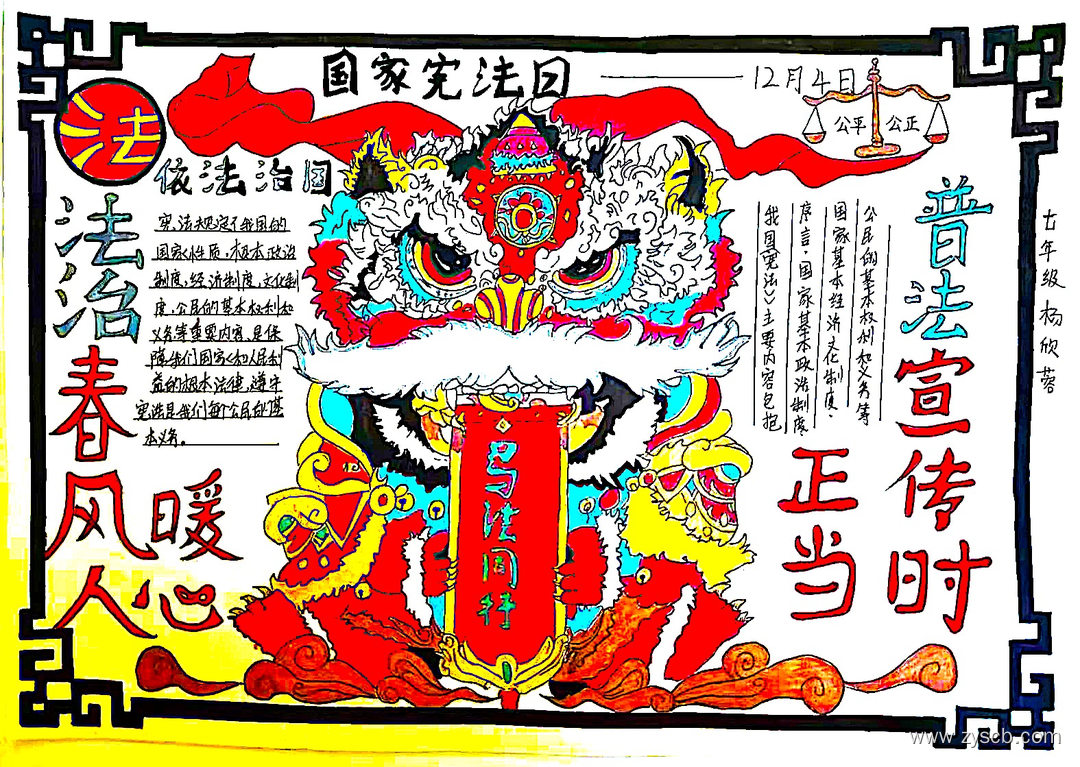 国家宪法日
12月4日
公平 公正
法
依法治国
宪法规定了我国的
国家性质,根本政治
制度,经济制度,文化制
度,公民的基本权利和
义务等重要内容,是保
障我们国家和人民利
益的根本法律,遵守
宪法是我们每个公民的基
本义务。
法治春风暖人心
与法同行
我国宪法》主要内容包括
序言,国家基本政治制度
国家基本经济文化制度,
公民的基本权利和义务等
普法宣传正当时
七年级 杨欣蓉
www.zyscb.com